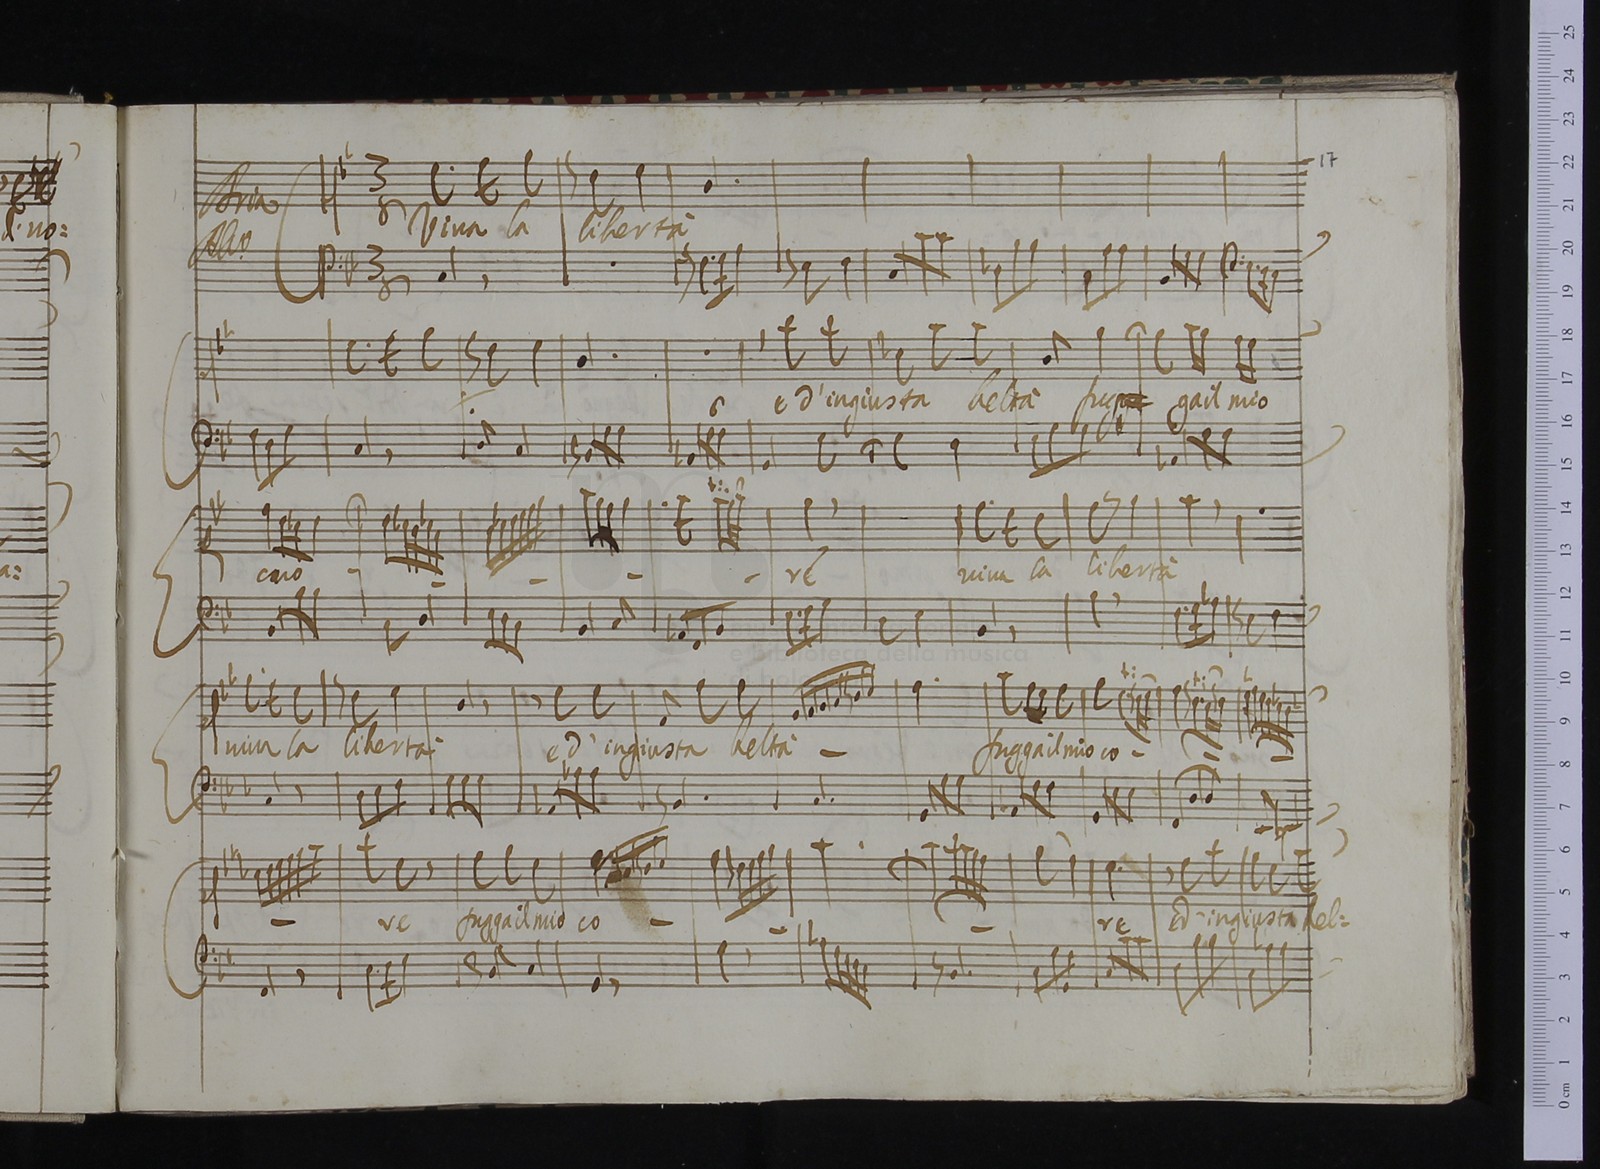 17
Aria
Viva la libertà
All.o
6
e d'ingiusta beltà fugga il mio
caro - - - - re viva la libertà
viva la libertà e d'ingiusta beltà - fugga il mio co - - -
- re fugga il mio co - - - re ed ingiusta bel=
d. no:
a:
e biblioteca della musica
0 cm 1 2 3 4 5 6 7 8 9 10 11 12 13 14 15 16 17 18 19 20 21 22 23 24 25